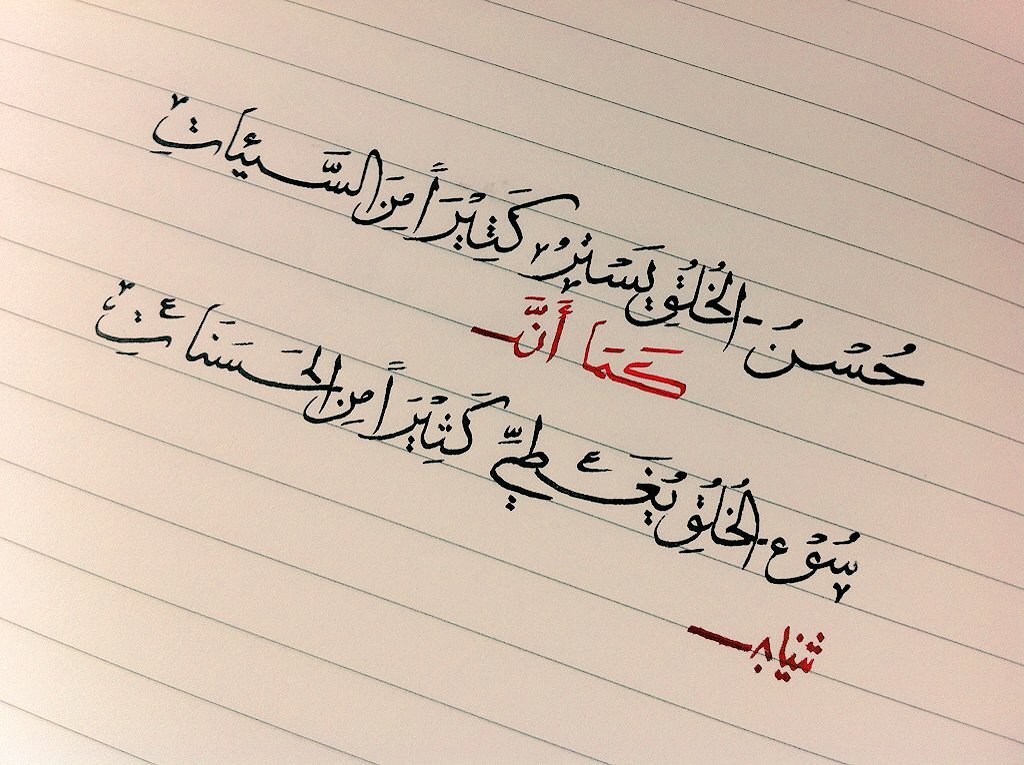 حُسْنُ الخُلُقِ يَسْتُرُ كَثِيْرَاً مِنَ السَّيئَاتِ
كَمَا أَنَّ
سُوْءَ الخُلُقِ يُغَطيِّ كَثِيْرَاً مِنَ الحَسَنَاتِ